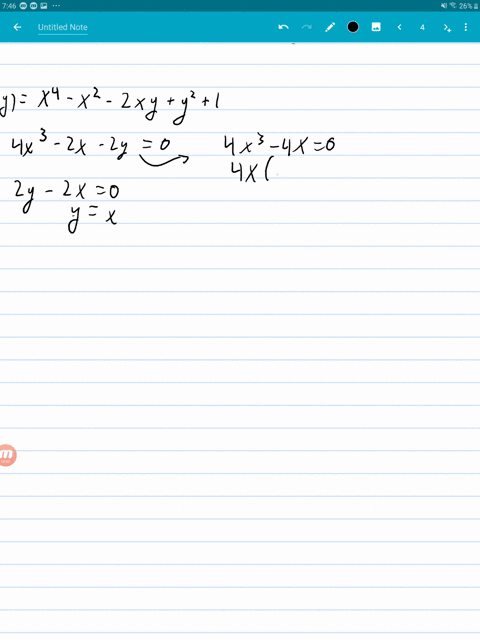 7:46 26%
Untitled Note 4
y) = x⁴ - x² - 2xy + y² + 1
4x³ - 2x - 2y = 0
4x³ - 4x = 0
4x(
2y - 2x = 0
y = x